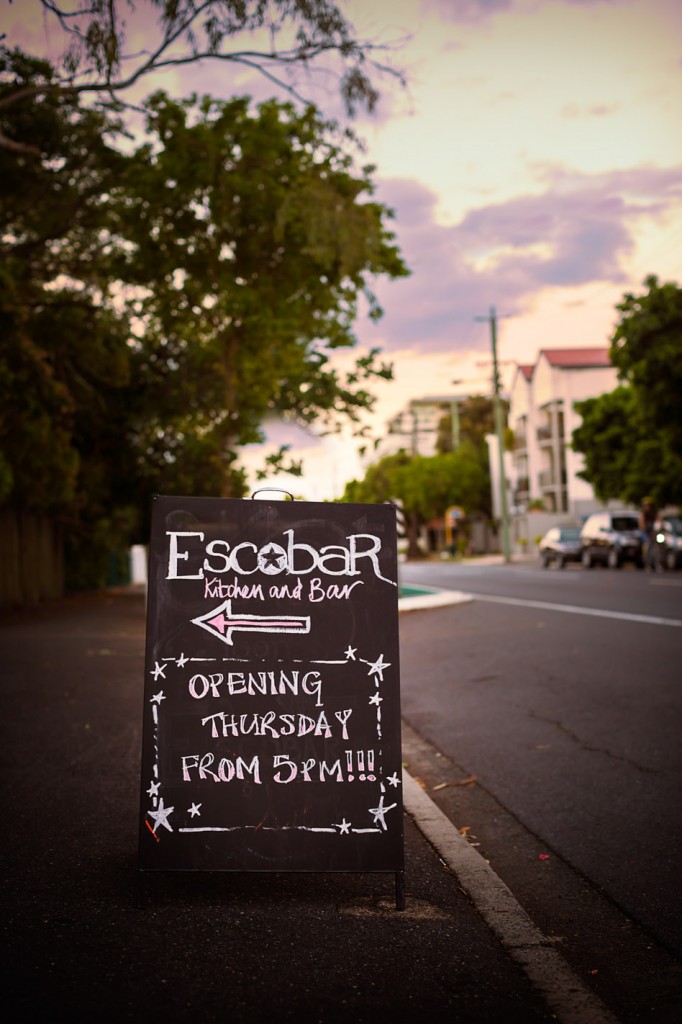 EscobaR
Kitchen and Bar
OPENING
THURSDAY
FROM 5PM!!!